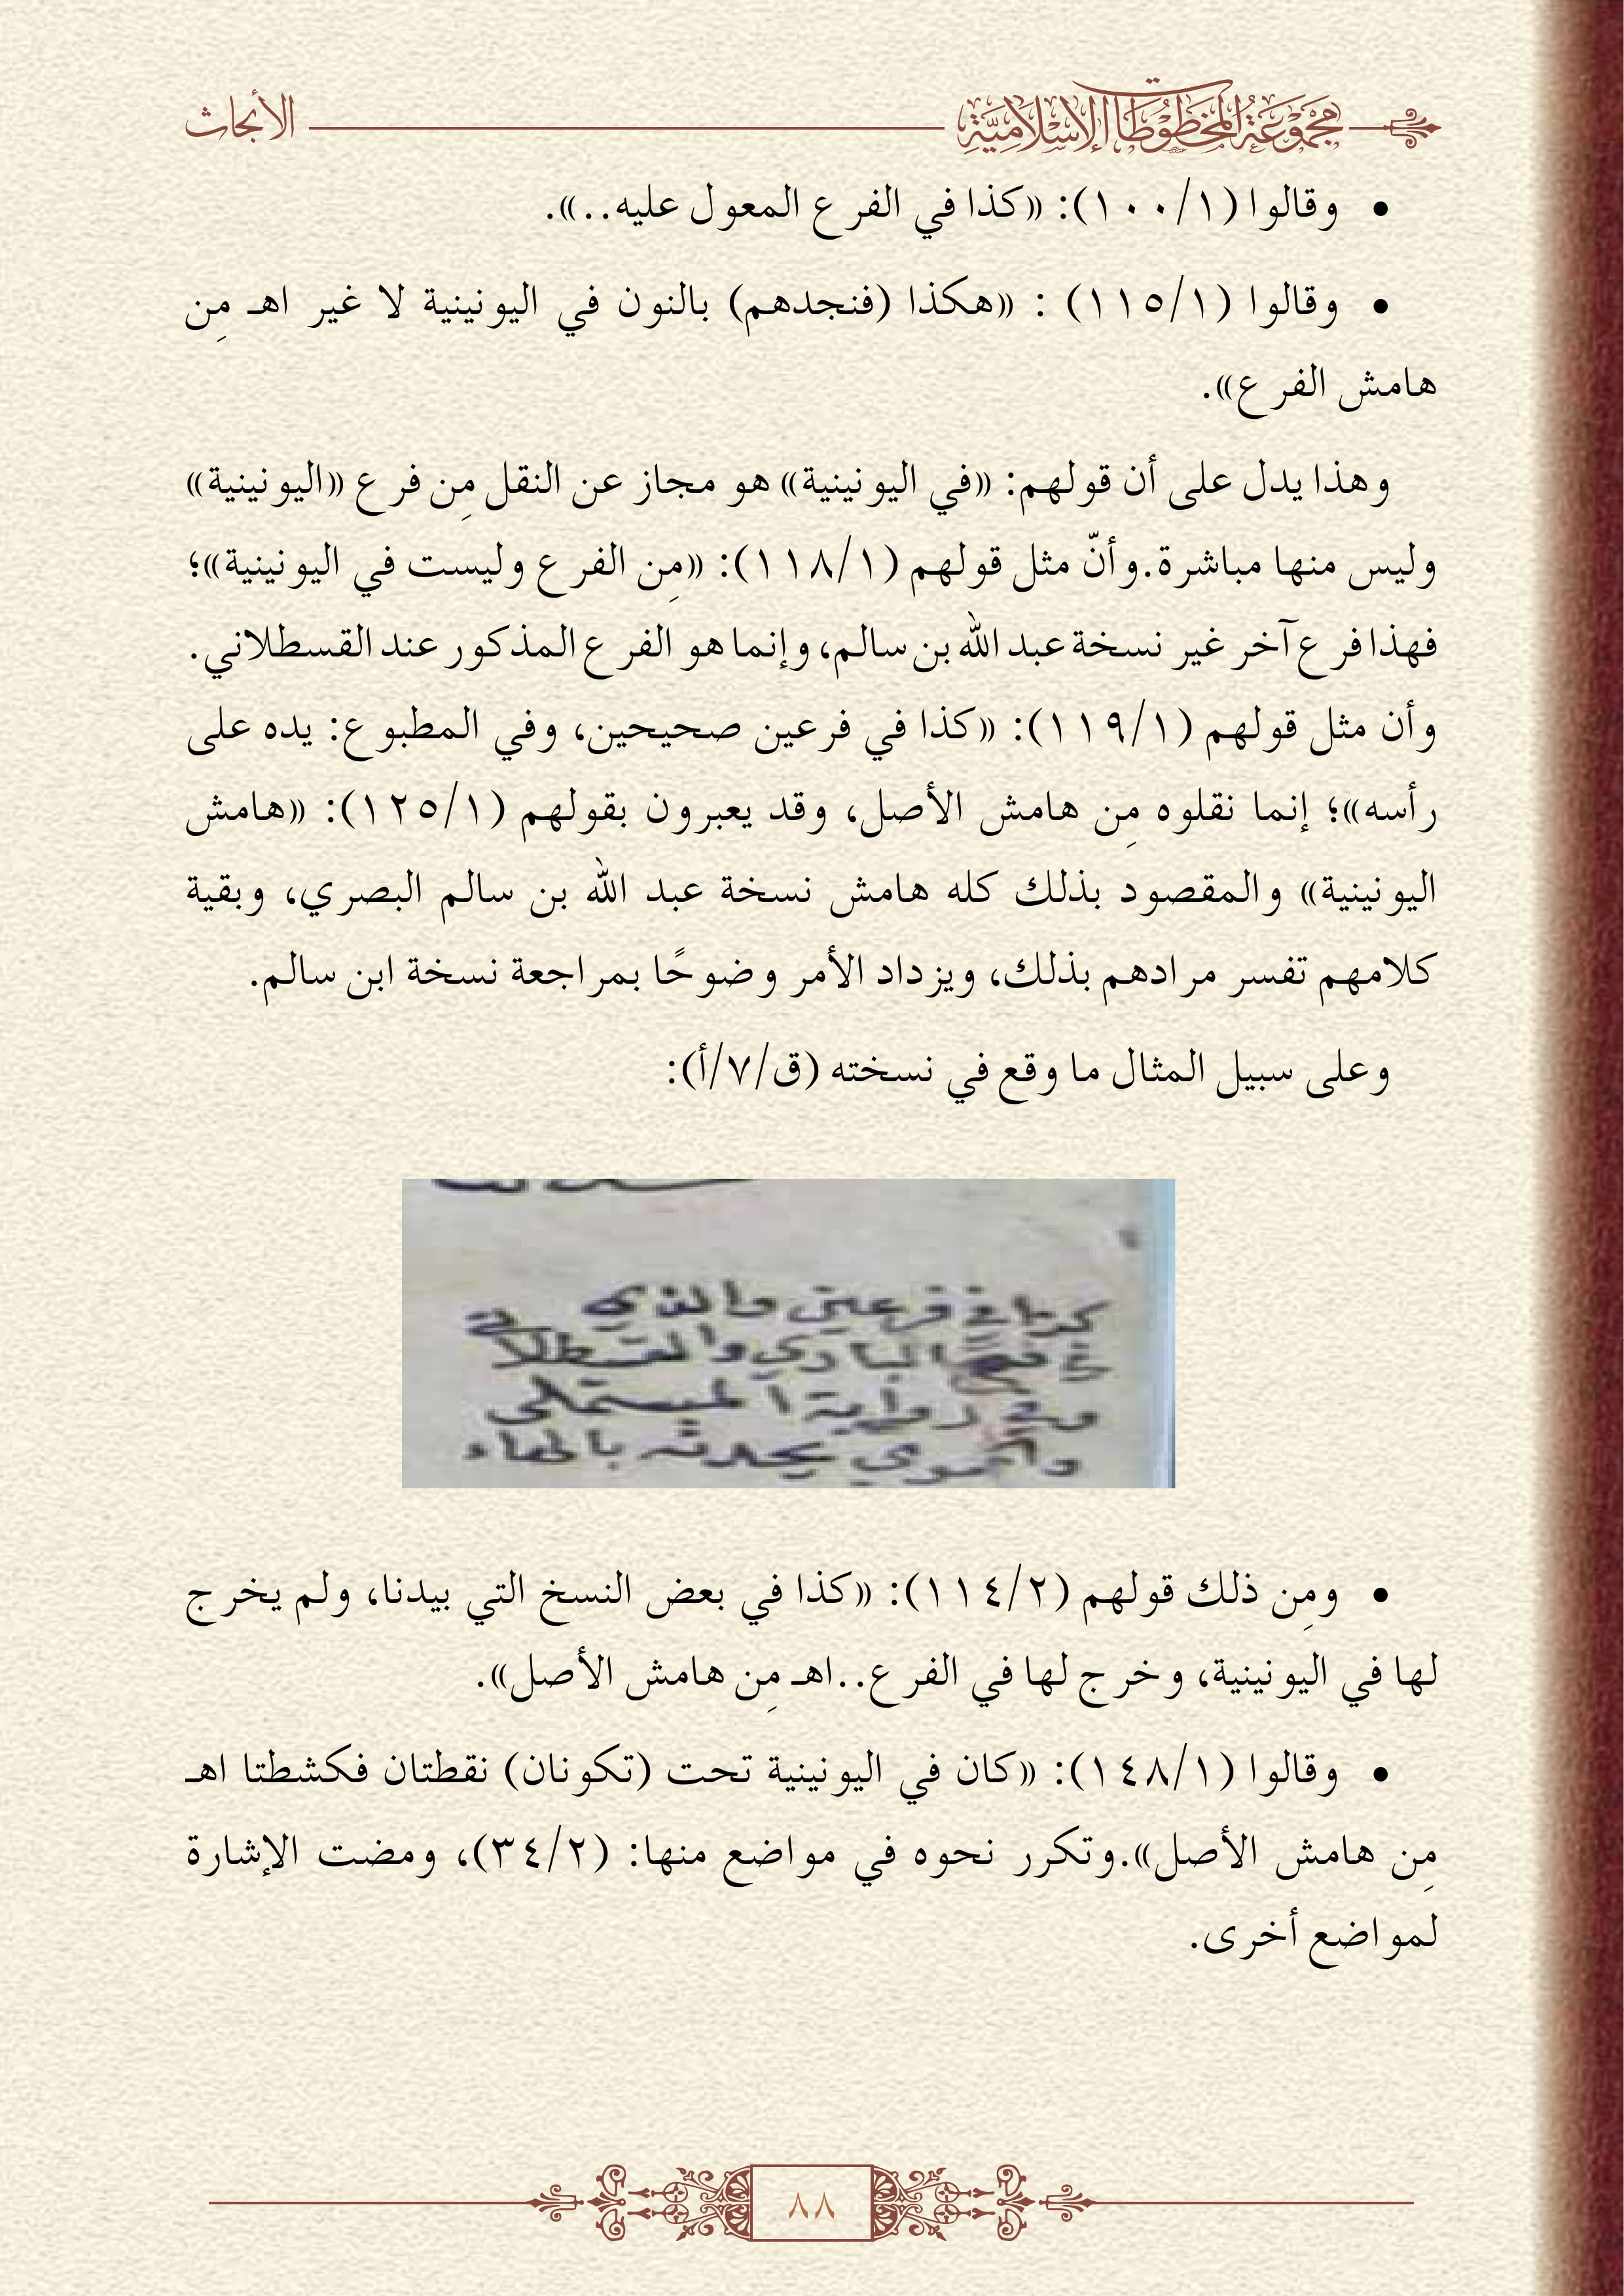 مَجْمُوْعَةُ المَخْطُوْطَاتِ الإِسْلَامِيَّةِ
الأبحاث
• وقالوا (١/١٠٠): «كذا في الفرع المعول عليه..».
• وقالوا (١/١١٥) : «هكذا (فنجدهم) بالنون في اليونينية لا غير اهـ مِن
هامش الفرع».
وهذا يدل على أن قولهم: «في اليونينية» هو مجاز عن النقل مِن فرع «اليونينية»
وليس منها مباشرة.وأنّ مثل قولهم (١/١١٨): «مِن الفرع وليست في اليونينية»؛
فهذا فرع آخر غير نسخة عبد الله بن سالم، وإنما هو الفرع المذكور عند القسطلاني.
وأن مثل قولهم (١/١١٩): «كذا في فرعين صحيحين، وفي المطبوع: يده على
رأسه»؛ إنما نقلوه مِن هامش الأصل، وقد يعبرون بقولهم (١/١٢٥): «هامش
اليونينية» والمقصود بذلك كله هامش نسخة عبد الله بن سالم البصري، وبقية
كلامهم تفسر مرادهم بذلك، ويزداد الأمر وضوحًا بمراجعة نسخة ابن سالم.
وعلى سبيل المثال ما وقع في نسخته (ق/٧/أ):
كذا في فرعين والذي
في البازي والقسطلاني
وفي رواية المستملى
والحموي يحدثه بالهاء
• ومِن ذلك قولهم (٢/١١٤): «كذا في بعض النسخ التي بيدنا، ولم يخرج
لها في اليونينية، وخرج لها في الفرع..اهـ مِن هامش الأصل».
• وقالوا (١/١٤٨): «كان في اليونينية تحت (تكونان) نقطتان فكشطتا اهـ
مِن هامش الأصل».وتكرر نحوه في مواضع منها: (٢/٣٤)، ومضت الإشارة
لمواضع أخرى.
٨٨